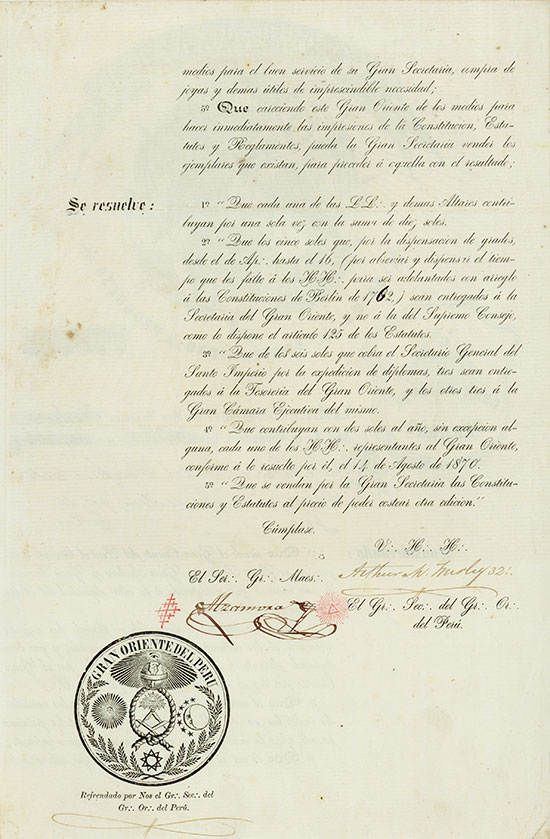 medios para el buen servicio de su Gran Secretaria, compra de
joyas y demas útiles de imprescindible necesidad;
5º Que careciendo este Gran Oriente de los medios para
hacer inmediatamente las impresiones de la Constitucion, Esta-
tutos y Reglamentos, pueda la Gran Secretaria vender los
ejemplares que existan, para proceder á aquella con el resultado;
Se resuelve:
1º “Que cada una de las LL∴ y demas Altares contri-
buyan por una sola vez con la suma de diez soles.
2º “Que los cinco soles que, por la dispensacion de grados,
desde el de Ap∴ hasta el 16, (por abreviar y dispensar el tiem-
po que les falte á los HH∴ para ser adelantados con arreglo
á las Constituciones de Berlin de 1762,) sean entregados á la
Secretaria del Gran Oriente, y no á la del Supremo Consejo,
como lo dispone el artículo 125 de los Estatutos.
3º “Que de los seis soles que cobra el Secretario General del
Santo Imperio por la expedicion de diplomas, tres sean entre-
gados á la Tesoreria del Gran Oriente, y los otros tres á la
Gran Cámara Ejecutiva del mismo.
4º “Que contribuyan con dos soles al año, sin excepcion al-
guna, cada uno de los HH∴ representantes al Gran Oriente,
conforme á lo resuelto por él, el 14 de Agosto de 1870.
5º “Que se vendan por la Gran Secretaria las Constitu-
ciones y Estatutos al precio de poder costear otra edicion.”
Cúmplase.
V∴ H∴ H∴
El Ser∴ Gr∴ Maes∴
Arthur M. 32∴
El Gr∴ Sec∴ del Gr∴ Or∴
del Perú.
GRAN ORIENTE DEL PERU
Refrendado por Nos el Gr∴ Sec∴ del
Gr∴ Or∴ del Perú.